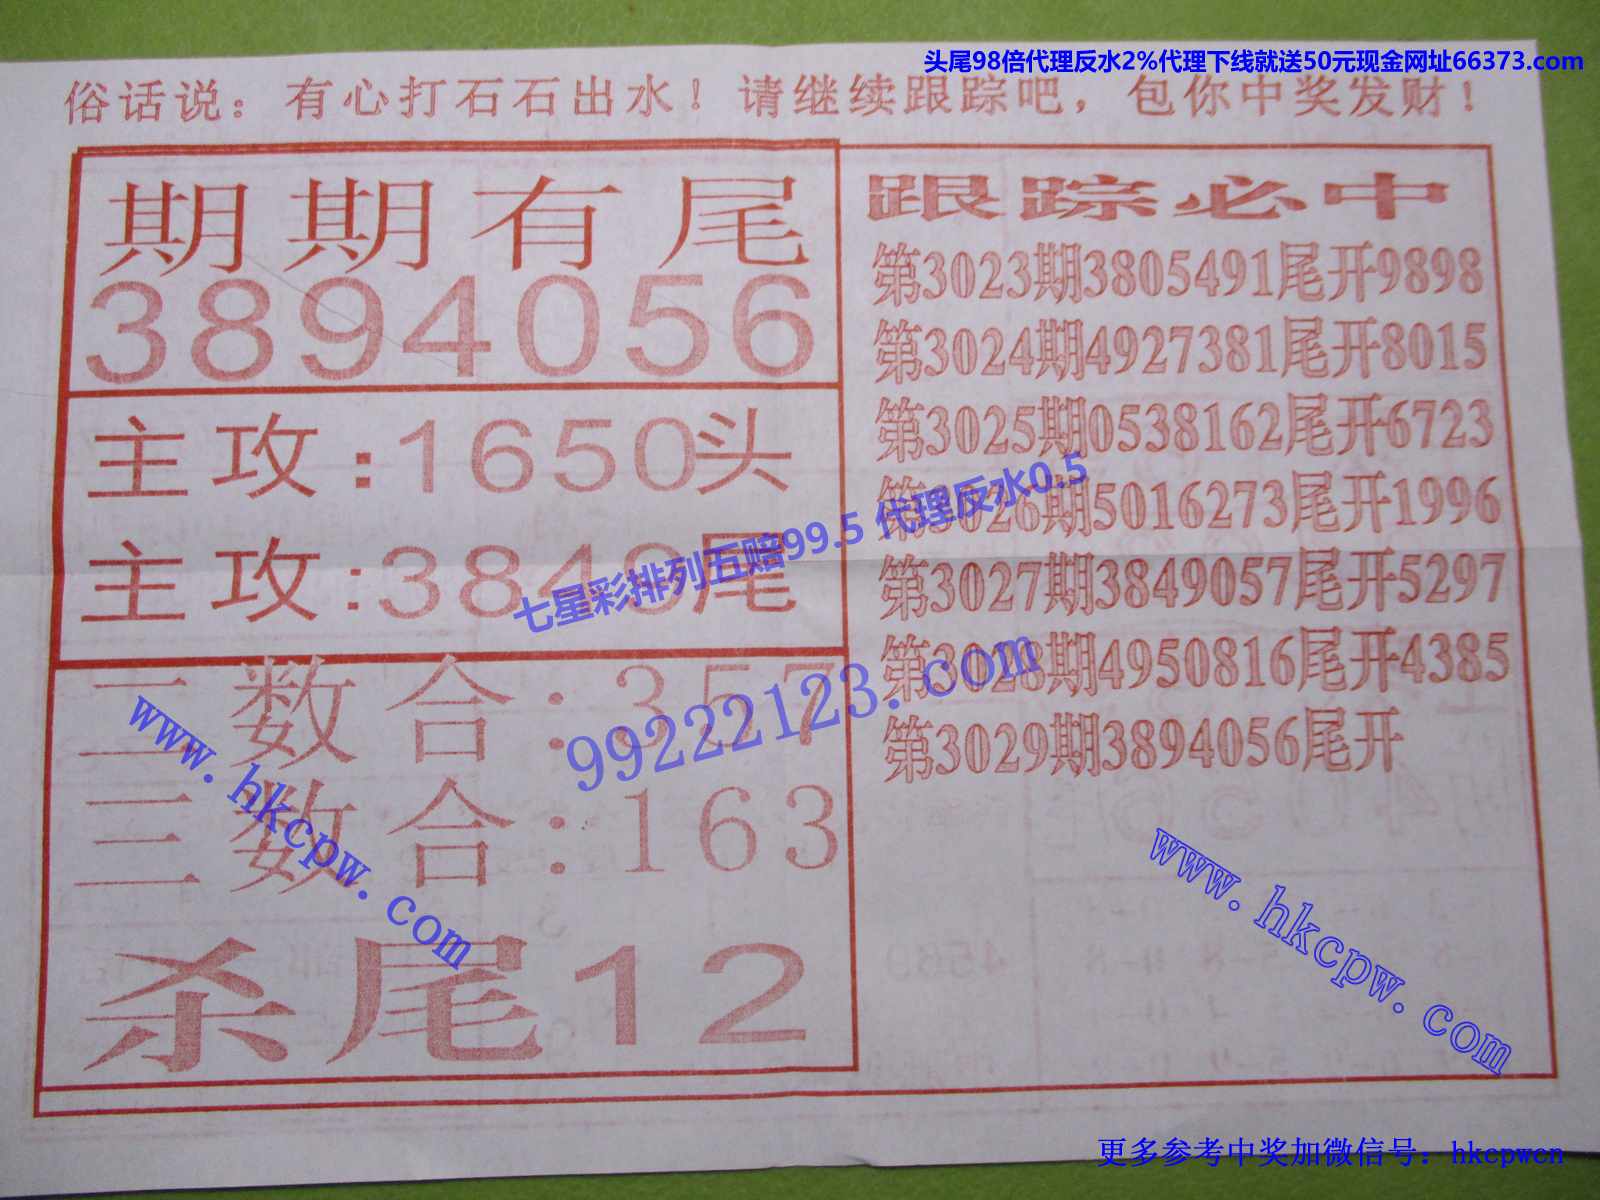 头尾98倍代理反水2%代理下线就送50元现金网址66373.com
俗话说：有心打石石出水！请继续跟踪吧，包你中奖发财！
期期有尾
3894056
主攻:1650头
主攻:3849尾
二数合:357
三数合:163
杀尾12
跟踪必中
第3023期3805491尾开9898
第3024期4927381尾开8015
第3025期0538162尾开6723
第3026期5016273尾开1996
第3027期3849057尾开5297
第3028期4950816尾开4385
第3029期3894056尾开
七星彩排列五赔99.5 代理反水0.5
99222123.com
www.hkcpw.com
www.hkcpw.com
更多参考中奖加微信号：hkcpwcn